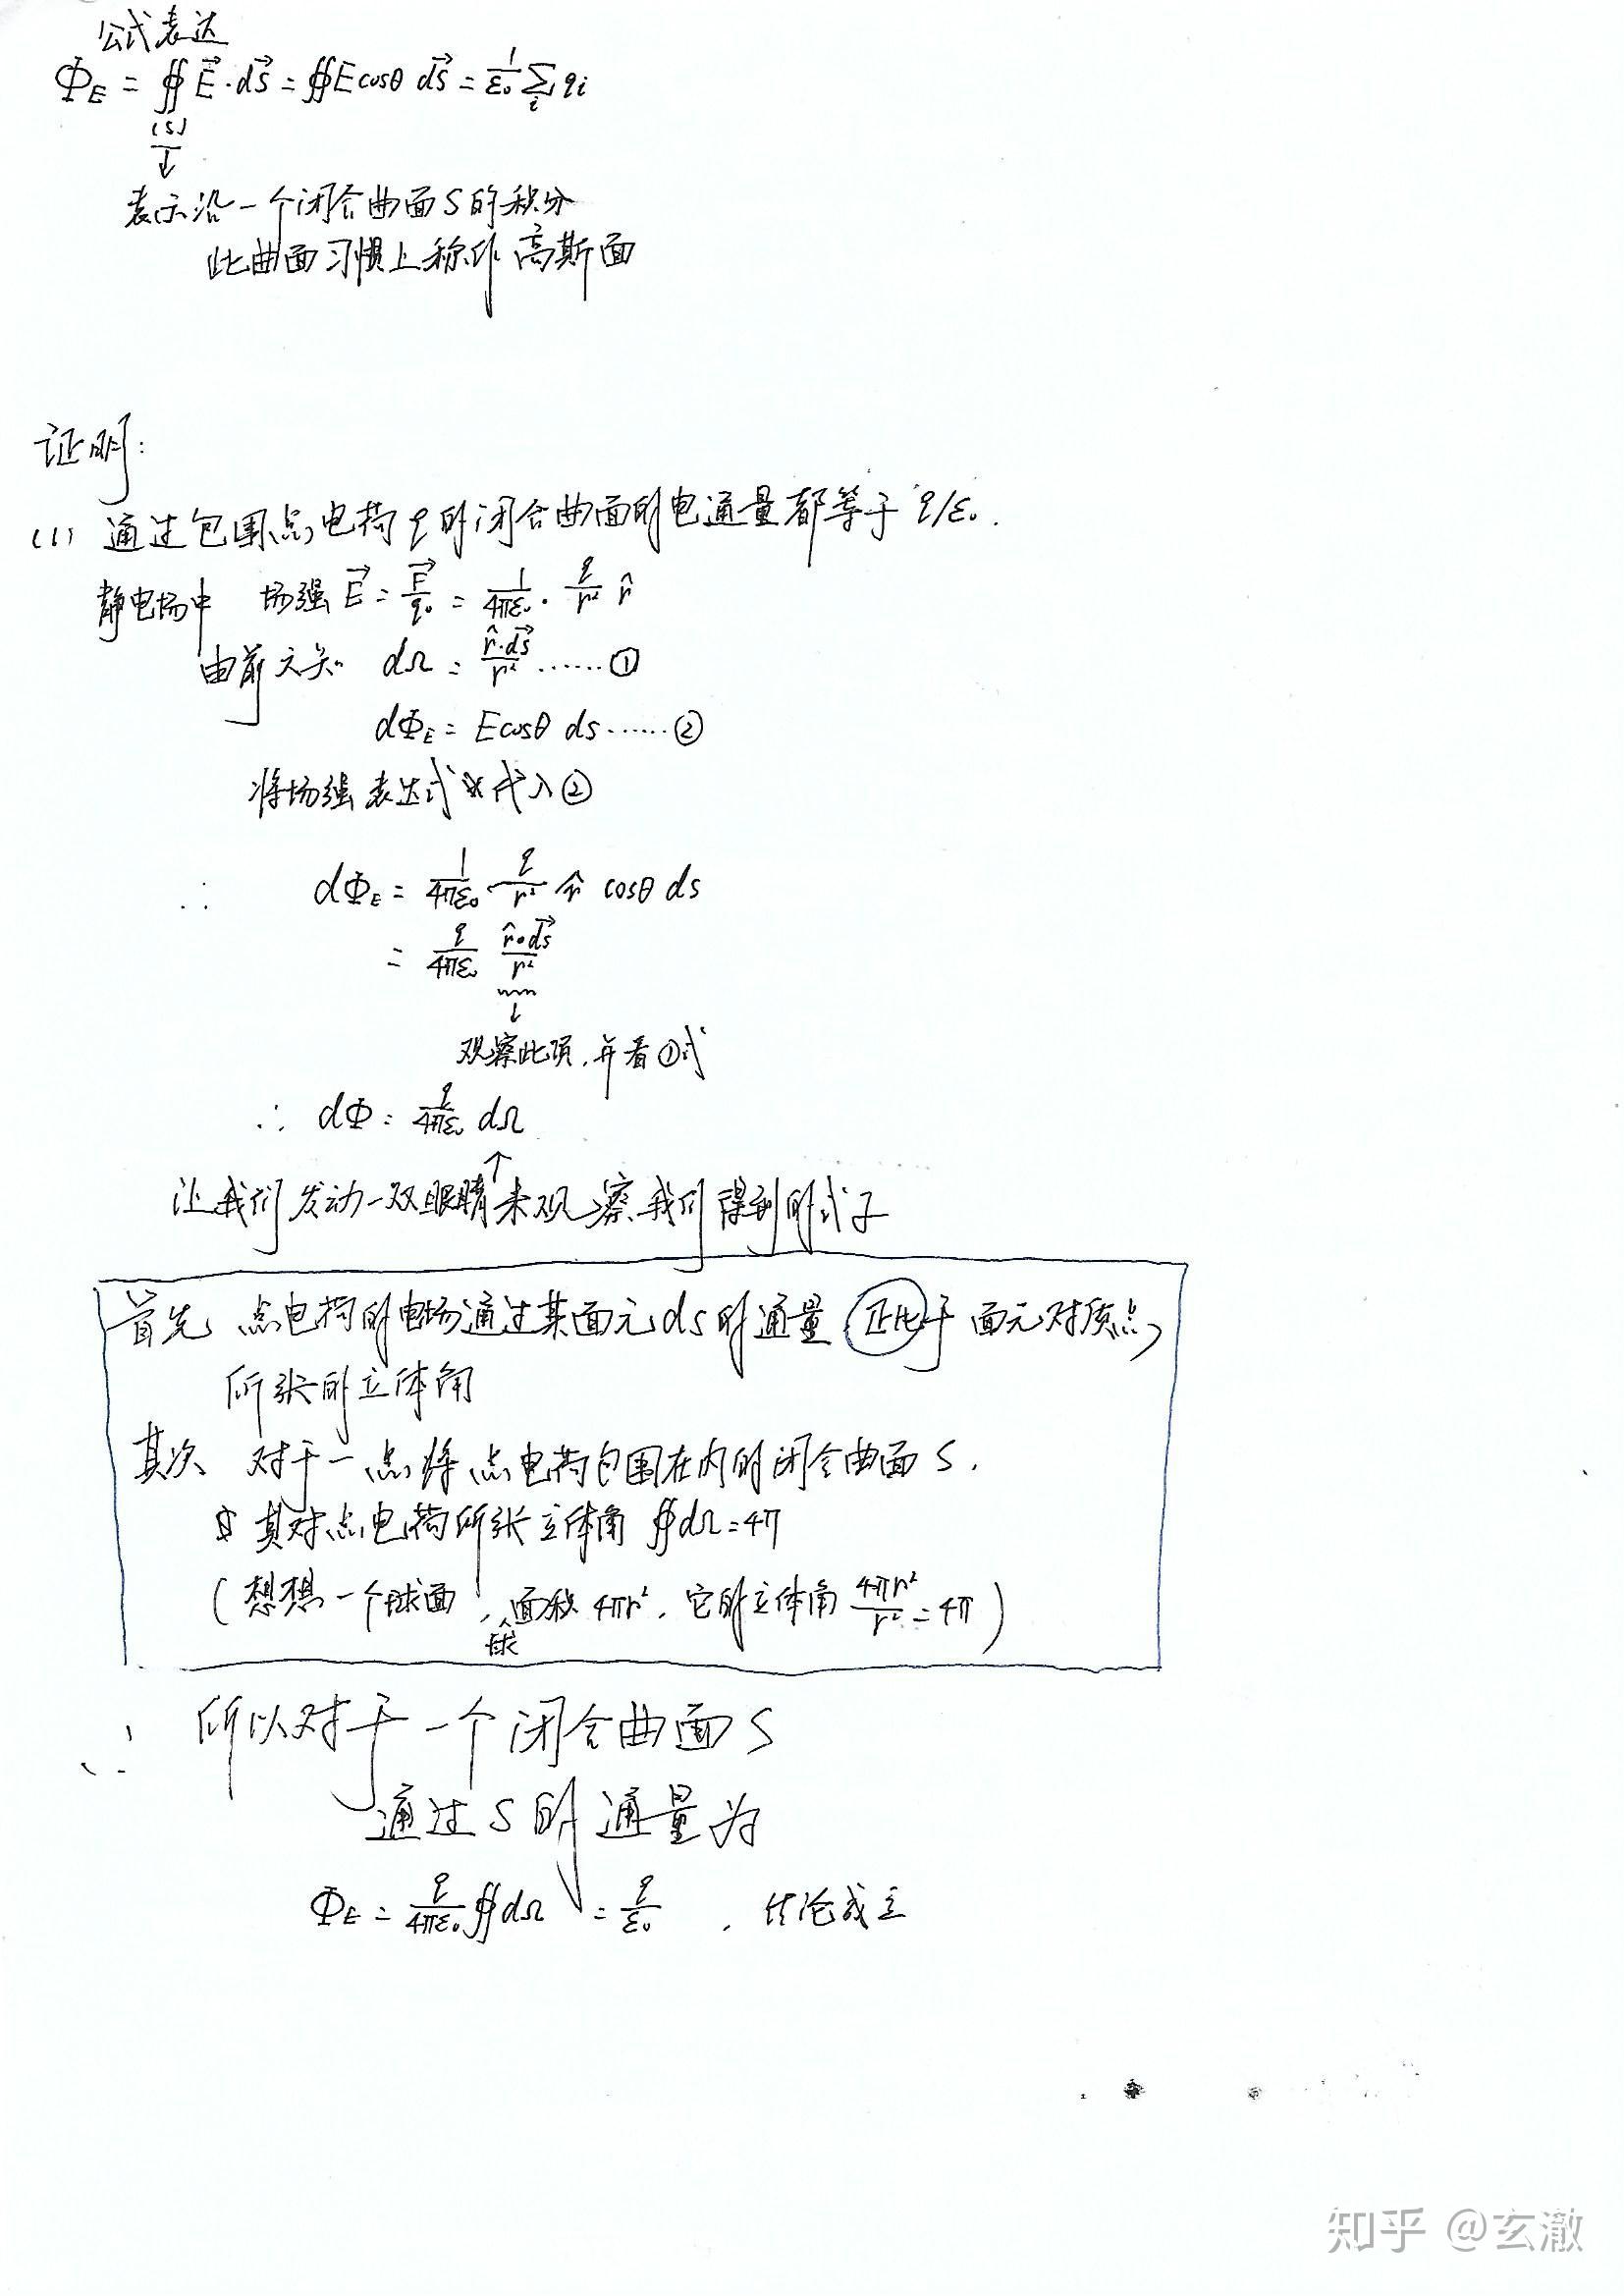 公式表达
Φ_E = ∯ E⃗·dS⃗ = ∯ E cosθ dS⃗ = 1/ε₀ Σ_i q_i
(S)
↓
表示沿一个闭合曲面S的积分
此曲面习惯上称作高斯面
证明:
(1) 通过包围点电荷q的闭合曲面的电通量都等于 q/ε₀.
静电场中 场强 E⃗ = F⃗/q₀ = 1/4πε₀ · q/r² r̂
由前文知 dΩ = r̂·dS⃗/r² ……①
dΦ_E = E cosθ ds ……②
将场强表达式代入②
∴ dΦ_E = 1/4πε₀ · q/r² r̂ cosθ ds
= q/4πε₀ r̂·dS⃗/r²
↓
观察此项,并看①式
∴ dΦ = q/4πε₀ dΩ
↑
让我们发动一双眼睛来观察我们得到的式子
首先 点电荷的电场通过某面元ds的通量 正比于 面元对顶点
所张的立体角
其次 对于一点将点电荷包围在内的闭合曲面S.
其对点电荷所张立体角 ∯dΩ=4π
(想想一个球面,球面积4πr²,它的立体角 4πr²/r² = 4π)
∴ 所以对于一个闭合曲面S
通过S的通量为
Φ_E = q/4πε₀ ∯dΩ = q/ε₀ , 结论成立
知乎 @玄澈